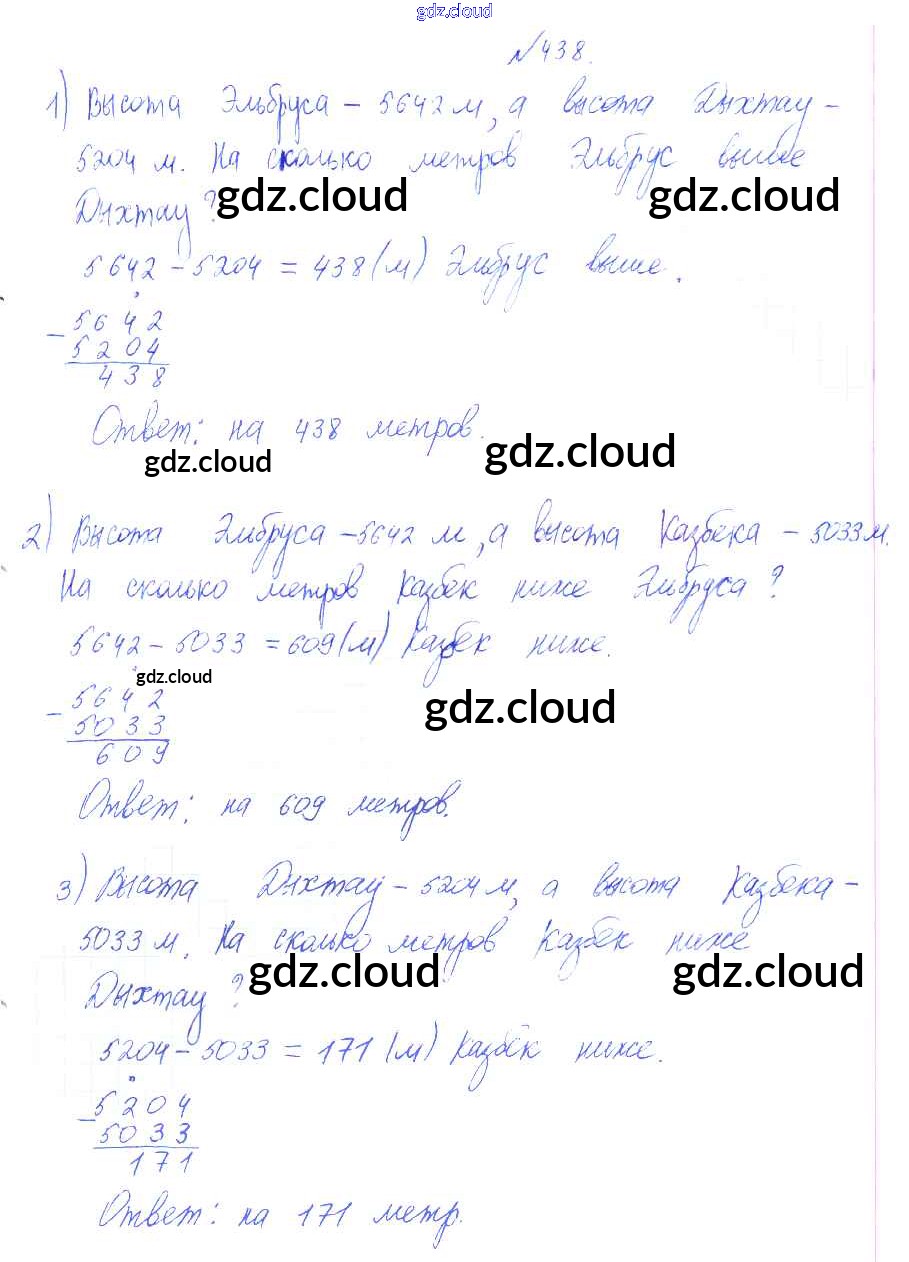 gdz.cloud
№438.
1) Высота Эльбруса – 5642 м, а высота Дыхтау –
5204 м. На сколько метров Эльбрус выше
gdz.cloud gdz.cloud
Дыхтау?
5642 – 5204 = 438 (м) Эльбрус выше.
– 5642
5204
438
Ответ: на 438 метров.
gdz.cloud gdz.cloud
2) Высота Эльбруса – 5642 м, а высота Казбека – 5033 м.
На сколько метров Казбек ниже Эльбруса?
5642 – 5033 = 609 (м) Казбек ниже.
gdz.cloud
– 5642
gdz.cloud
5033
609
Ответ: на 609 метров.
3) Высота Дыхтау – 5204 м, а высота Казбека –
5033 м. На сколько метров Казбек ниже
gdz.cloud gdz.cloud
Дыхтау?
5204 – 5033 = 171 (м) Казбек ниже.
– 5204
5033
171
Ответ: на 171 метр.